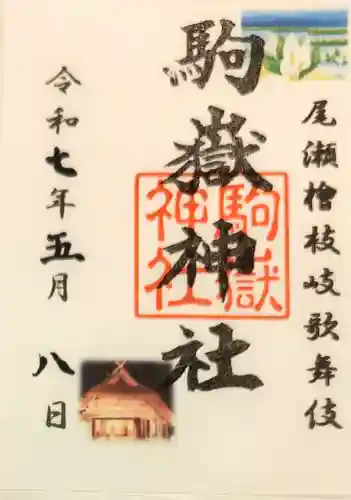 尾瀬檜枝岐歌舞伎
駒嶽神社
駒嶽
神社
令和七年五月八日